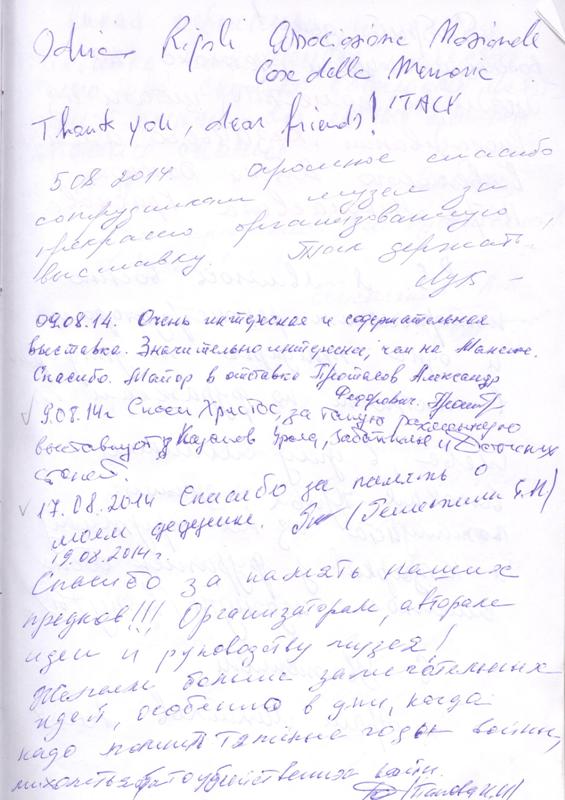 Ripoli Associazione Nazionale
Casa della Memoria
ITALY
Thank you, dear friends!
5 08 2014. огромное спасибо
сотрудникам музея за
прекрасно организованную
выставку. Так держать!
09.08.14. Очень интересная и содержательная
выставка. Значительно интересней, чем на
Спасибо. Майор в отставке Протасов Александр
Федорович.
9.08.14г Спаси Христос, за такую
выставку от Казаков Урала, Забайкалья и
17.08.2014 Спасибо за память о
моем дедушке.
19.08.2014г.
Спасибо за память наших
предков!!! Организаторам, авторам
идеи и руководству музея!
Желаем больше замечательных
идей, особенно в дни, когда
надо помнить годы войны,